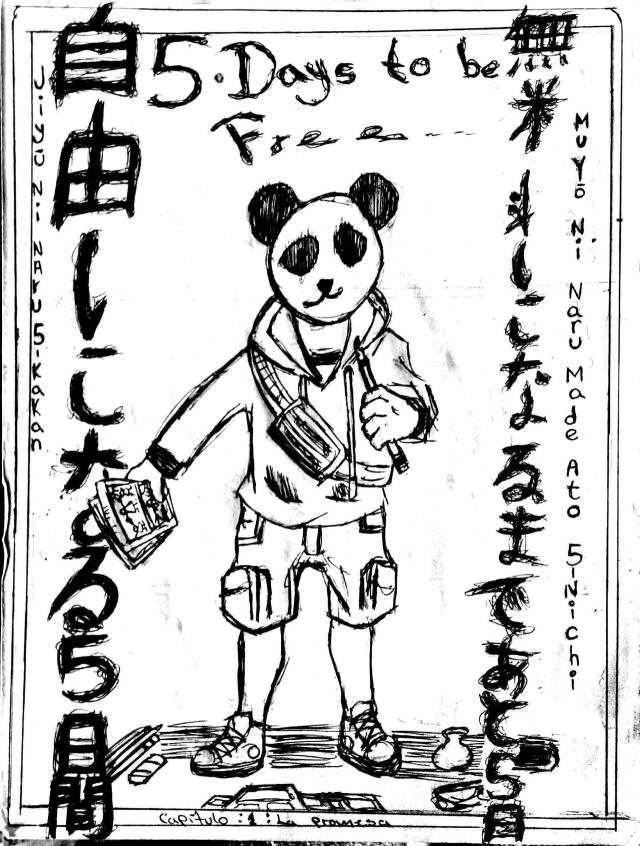 5.Days to be
Free...---
自由になる5日間
JiYUU Ni NARU 5-KaKan
無料になるまであと5日
MuYō Ni Naru Made Ato 5-Nichi
Capitulo :1: La promesa